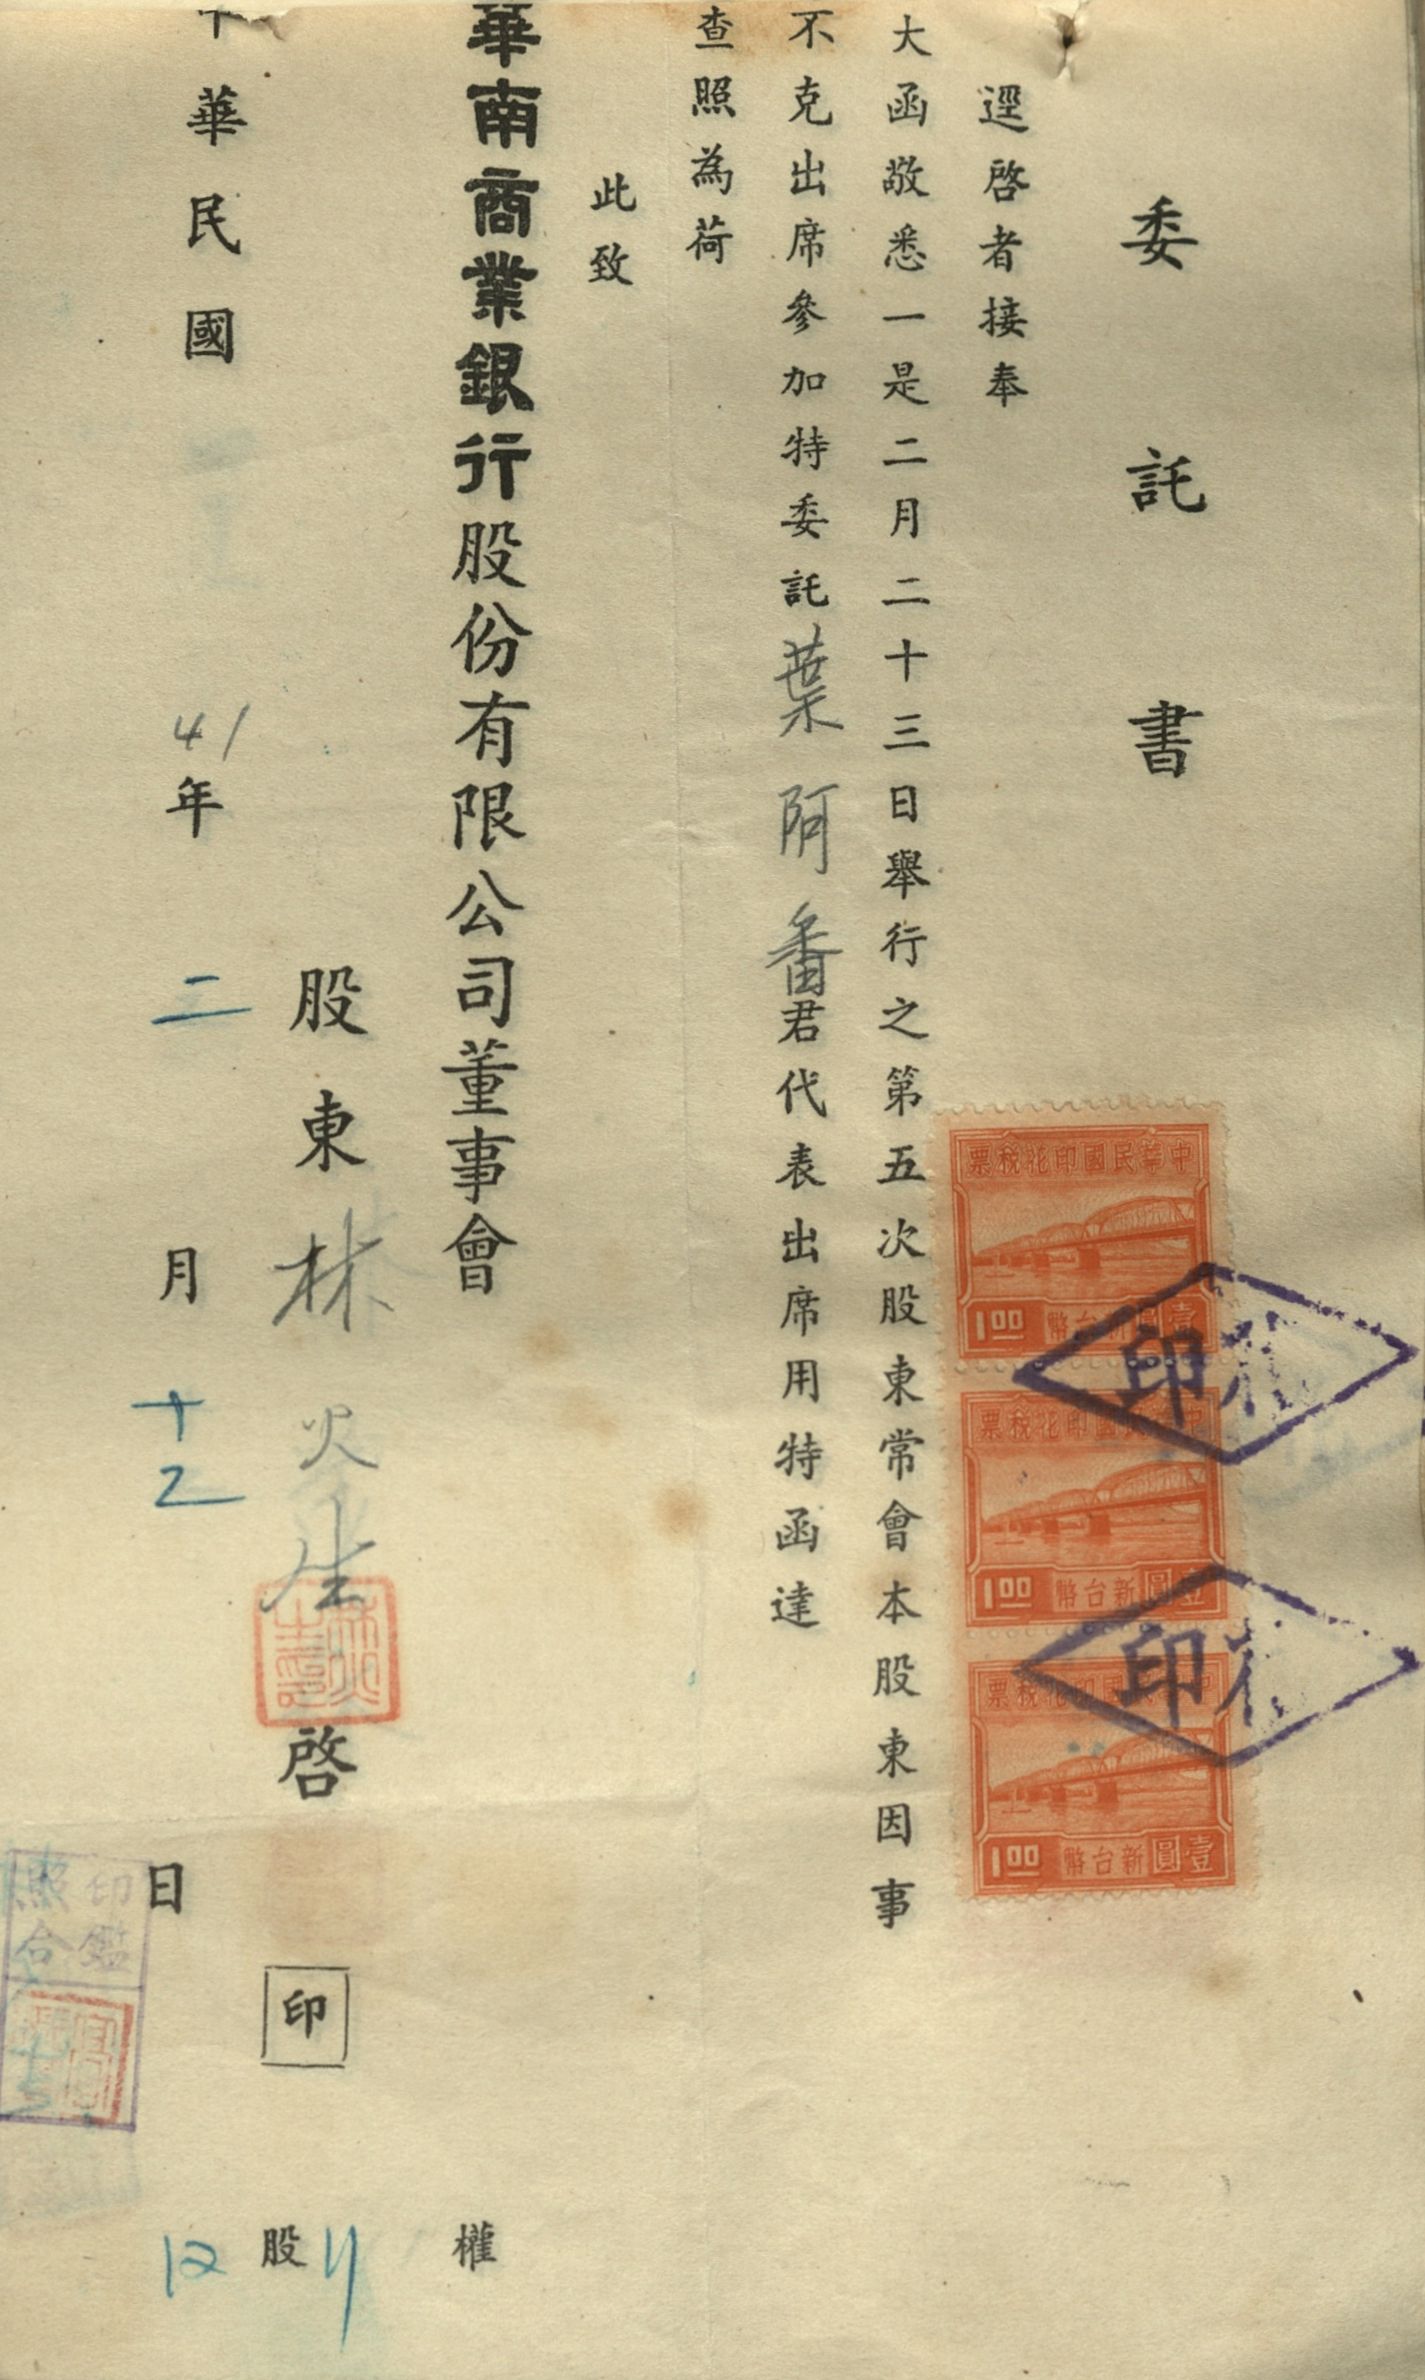 委託書
逕啓者接奉
大函敬悉一是二月二十三日舉行之第五次股東常會本股東因事
不克出席參加特委託葉阿番君代表出席用特函達
查照為荷
此致
華南商業銀行股份有限公司董事會
股東林火生啓 印
中華民國41年二月十二日
權
11
股
12
中華民國印花稅票
1.00 壹圓新台幣
中華民國印花稅票
1.00 壹圓新台幣
中華民國印花稅票
1.00 壹圓新台幣
印
印
印鑑
照合